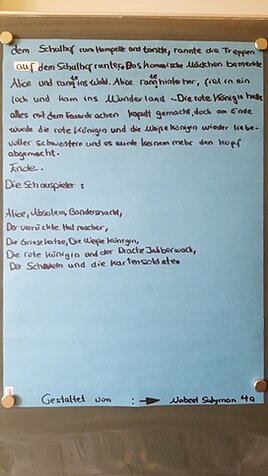 dem Schulhof rum Hampelte und tanzte, rannte die Treppen
auf dem Schulhof runter. Das komische Mädchen bemerkte
Alice und rannte ins Wald. Alice rannte hinterher, fiel in ein
Loch und kam ins Wunderland. Die rote Königin hatte
alles mit dem kaputt gemacht, doch am Ende
wurde die rote Königin und die Weiße Königin wieder liebe-
voller schwestern und es wurde keinem mehr den Kopf
abgemacht.
Ende.
Die Schauspieler:
Alice, Absolem, Bandersnachl,
Der verrückte Hut macher,
Die Grinsekatze, Die Weiße Königin,
Die rote Königin und der Drache Jabberwock,
Der und die Kartensoldaten
Gestaltet von : → Nabeel 4a